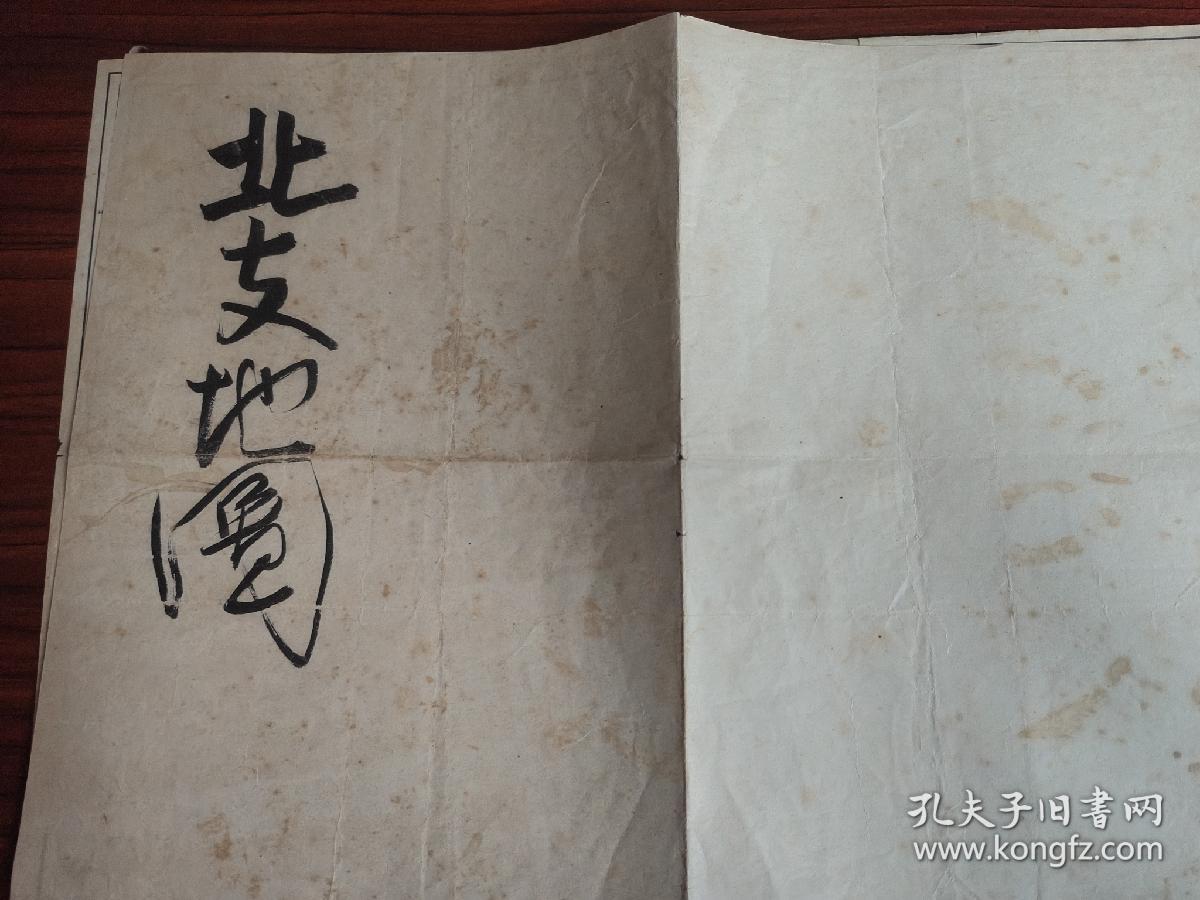 北支地圖
孔夫子旧書网
www.kongfz.com